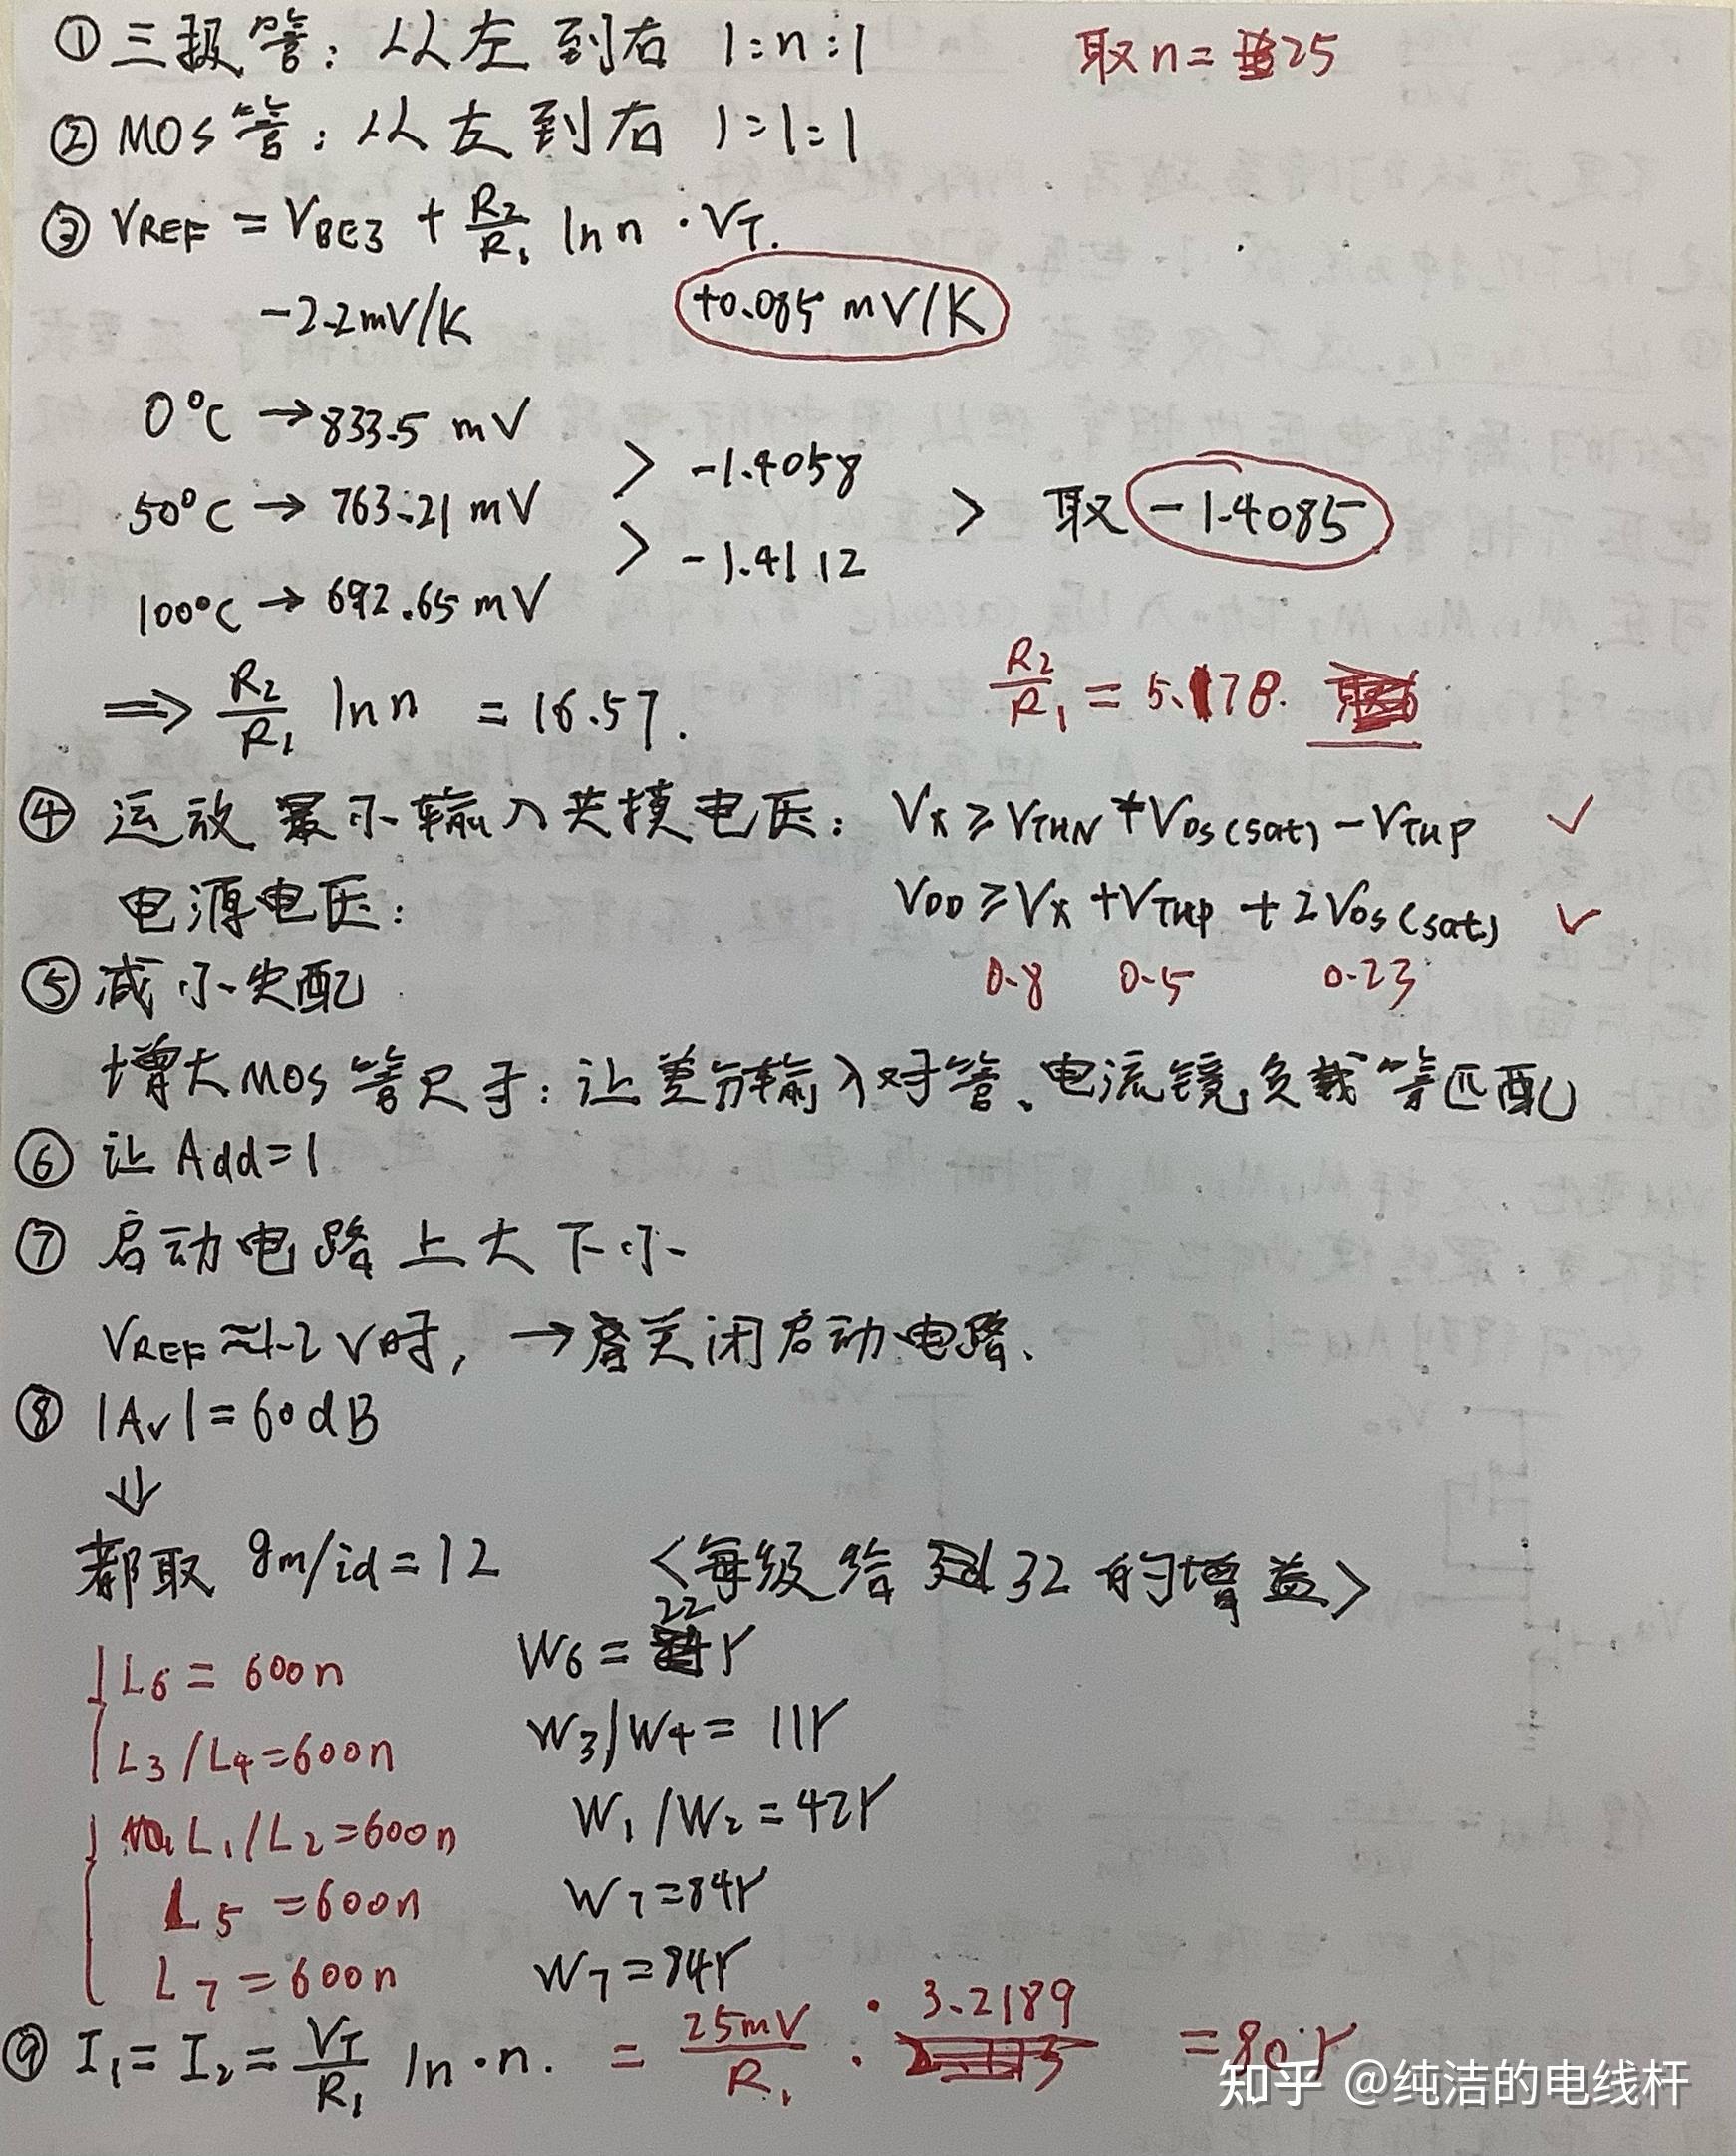 ①三极管：从左到右 1:n:1 取n=25
②MOS管：从左到右 1:1:1
③VREF = VBE3 + R2/R1 ln n · VT.
-2.2mV/K +0.085 mV/K
0°C → 833.5 mV
> -1.4058
50°C → 763.21 mV > 取 -1.4085
> -1.4112
100°C → 692.65 mV
⇒ R2/R1 ln n = 16.57. R2/R1 = 5.178.
④运放最小输入共摸电压： Vx ≥ VTHN + VDS(sat) - VTHP ✓
电源电压： VDD ≥ Vx + VTHP + 2VDS(sat) ✓
0.8 0.5 0.23
⑤减小失配
增大MOS管尺寸：让差分输入对管、电流镜负载等匹配
⑥让 Add=1
⑦启动电路上大下小
VREF≈1.2V时，→ 关闭启动电路.
⑧|Av| = 60dB
↓
都取 gm/id = 12 <每级给到32的增益>
L6 = 600n W6 = 22r
L3/L4=600n W3/W4 = 11r
L1/L2=600n W1/W2=42r
L5 =600n W7=84r
L7=600n W7=84r
⑨I1= I2= VT/R1 ln·n. = 25mV/R1 · 3.2189 = 80r
知乎 @纯洁的电线杆